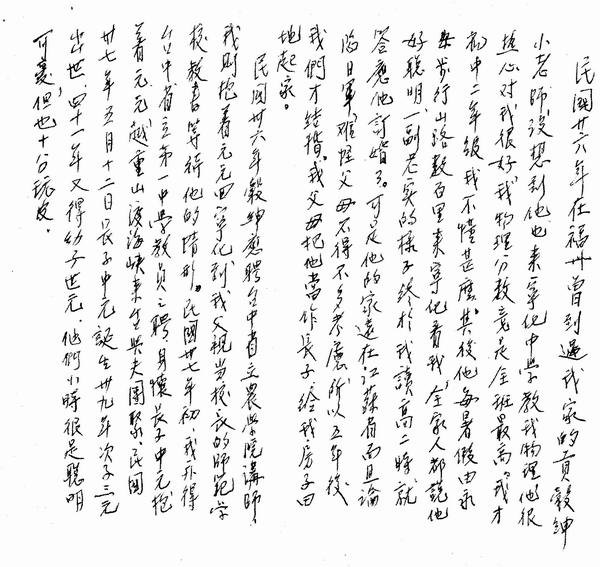 民國廿八年在福州曾到過我家的貢穀紳
小老師沒想到他也來寧化中學教我物理他很
熱心對我很好，我物理分數竟是全班最高。我才
初中二年級我不懂甚麼。其後他每暑假由永
安步行山路數百里來寧化看我，全家人都說他
好聰明，一副老實的樣子終於我讀高二時就
答應他訂婚了。可是他的家遠在江蘇省而且淪
陷日軍，難怪父母不得不多考慮，所以五年後
我們才結婚。我父母把他當作長子，給我房子田
地起家。
民國卅六年穀紳應聘台中省立農學院講師，
我則抱着元元回寧化到我父親當校長的師範學
校教書等待他的情形。民國卅七年初，我亦得
台中省立第一中學教員之聘身懷長子中元抱
着元元越重山渡海峽來台與夫團聚。民國
卅七年五月十二日長子中元誕生卅九年次子三元
出世，四十一年又得幼子世元，他們小時很是聰明
可愛，但也十分玩皮。